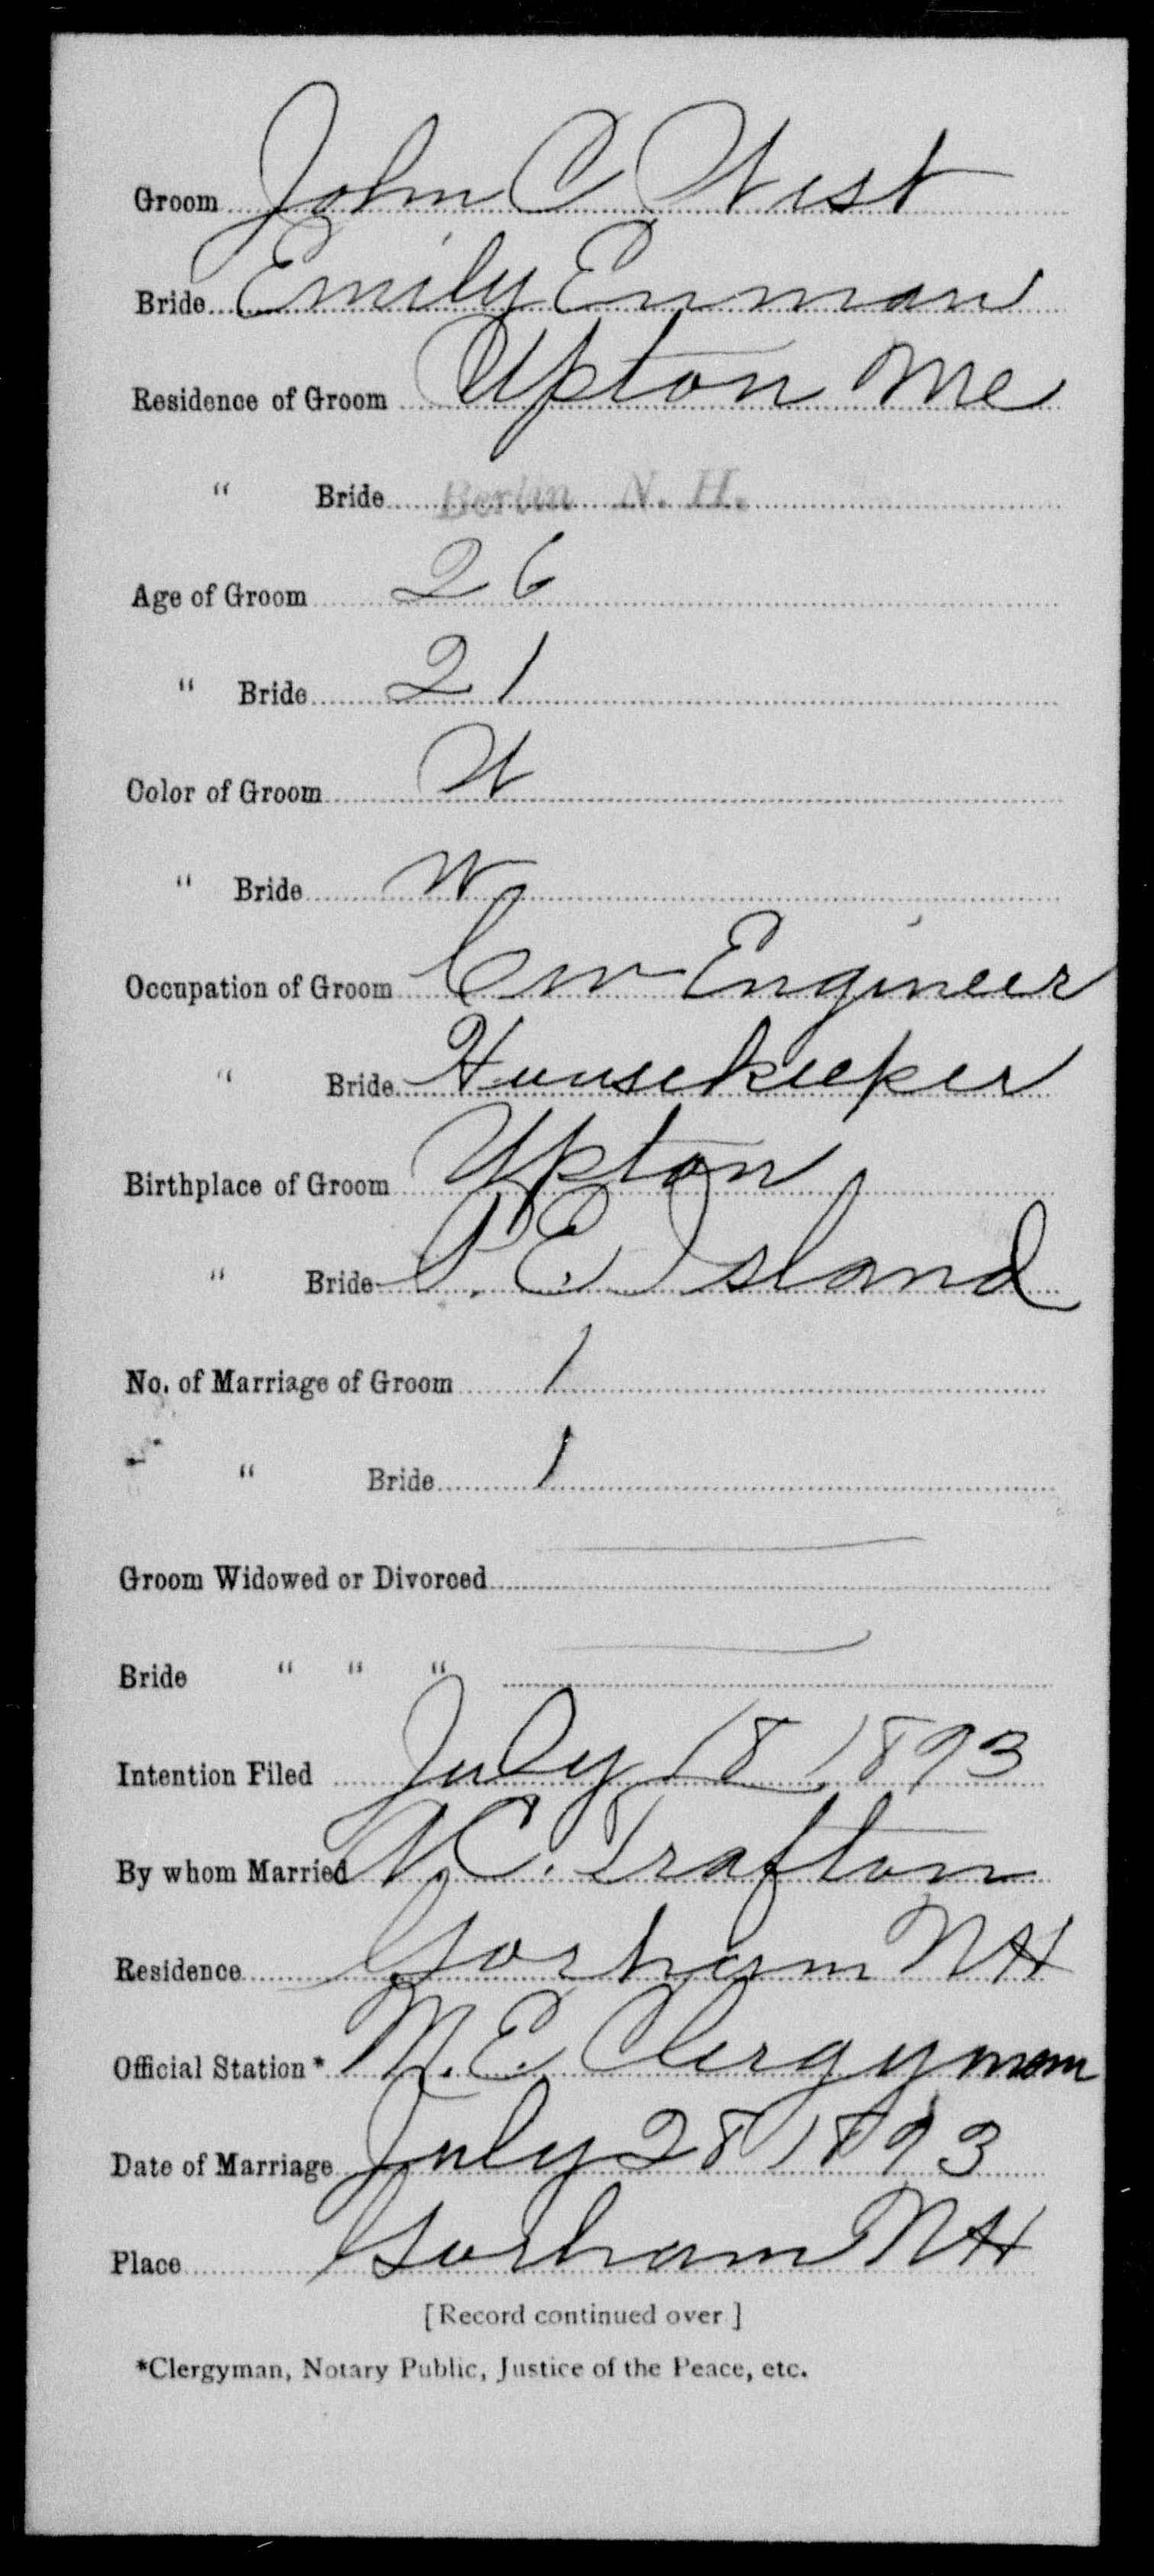 Groom John C West
Bride Emily Enman
Residence of Groom Upton Me
" Bride Berlin N. H.
Age of Groom 26
" Bride 21
Color of Groom W
" Bride W
Occupation of Groom Civ Engineer
" Bride Housekeeper
Birthplace of Groom Upton
" Bride P. E. Island
No. of Marriage of Groom 1
" Bride 1
Groom Widowed or Divorced
Bride " " "
Intention Filed July 18 1893
By whom Married C. Trafton
Residence Gorham NH
Official Station* M. E. Clergyman
Date of Marriage July 28 1893
Place Gorham NH
[Record continued over]
*Clergyman, Notary Public, Justice of the Peace, etc.